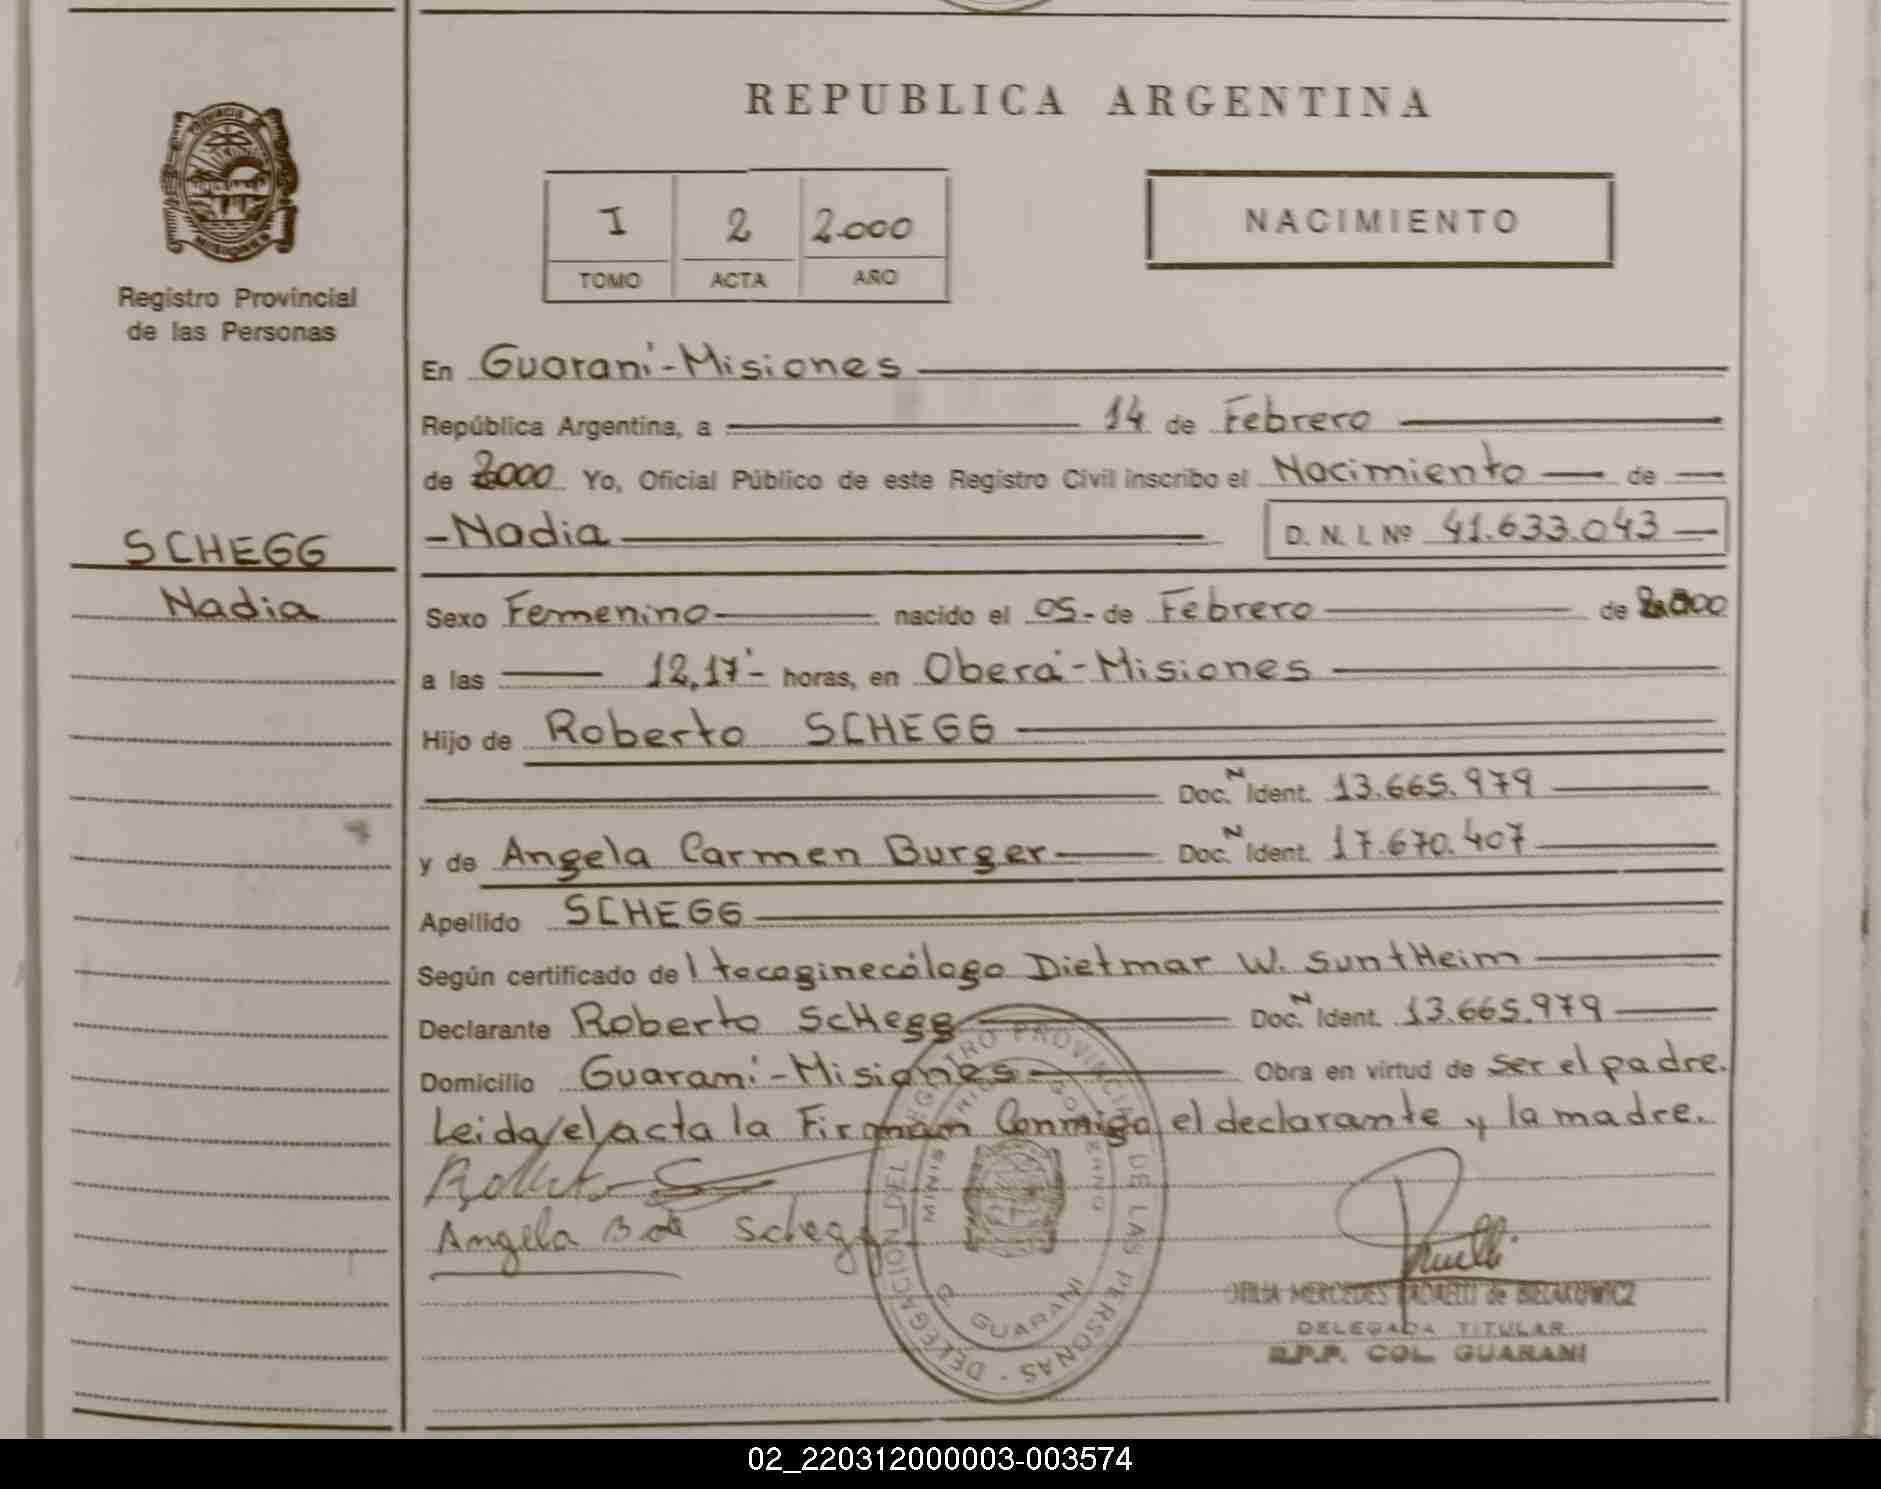 REPUBLICA ARGENTINA
PROVINCIA DE
MISIONES
Registro Provincial
de las Personas
I 2 2.000
TOMO ACTA AÑO
NACIMIENTO
En Guaraní-Misiones
República Argentina, a 14 de Febrero
de 2000 Yo, Oficial Público de este Registro Civil inscribo el Nacimiento de
-Nadia D. N. I. Nº 41.633.043
SCHEGG
Nadia
Sexo Femenino nacido el 05- de Febrero de 2.000
a las 12,17'- horas, en Oberá-Misiones
Hijo de Roberto SCHEGG
Doc. N Ident. 13.665.979
y de Angela Carmen Burger Doc. N Ident. 17.670.407
Apellido SCHEGG
Según certificado de l tocoginecólogo Dietmar W. SuntHeim
Declarante Roberto ScHegg Doc. N Ident. 13.665.979
Domicilio Guaraní-Misiones Obra en virtud de ser el padre.
Leida/el/acta la Firman Conmigo el declarante y la madre.
Roberto
Angela B de Schegg
REGISTRO PROVINCIAL DE LAS PERSONAS - DELEGACION DEL
MINISTERIO GOBIERNO
GUARANI
MERCEDES de BIELAKOWICZ
DELEGADA TITULAR
R.P.P. COL. GUARANI
02_220312000003-003574